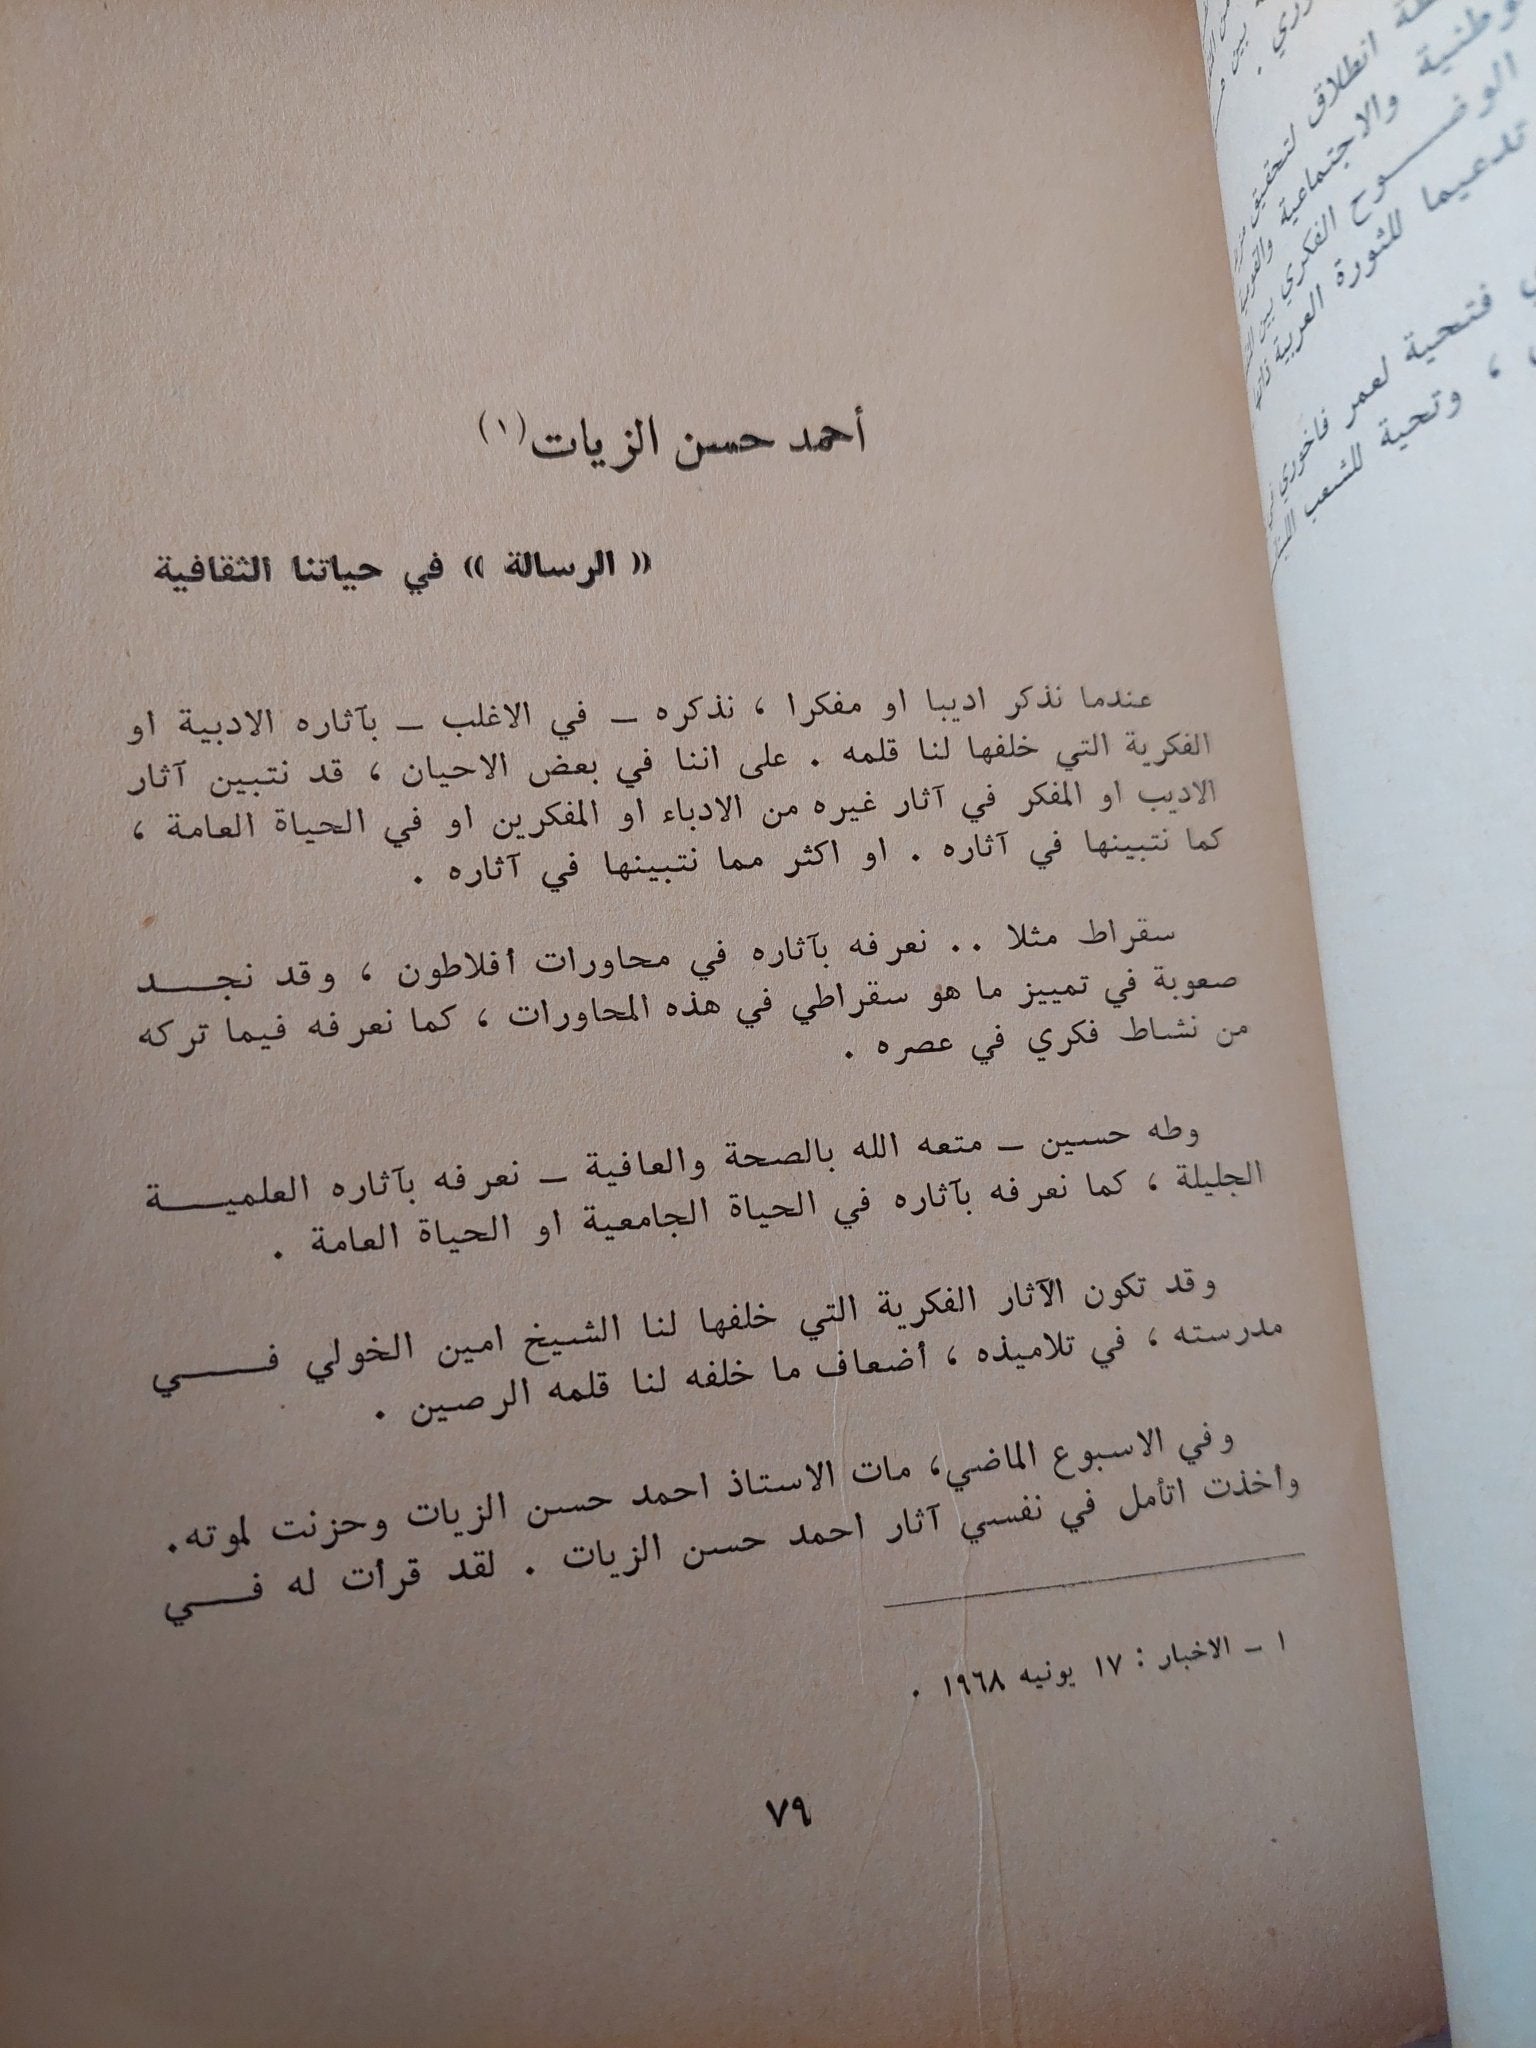 أحمد حسن الزيات (١)
« الرسالة » في حياتنا الثقافية
عندما نذكر اديبا او مفكرا ، نذكره ـ في الاغلب ـ بآثاره الادبية او
الفكرية التي خلفها لنا قلمه . على اننا في بعض الاحيان ، قد نتبين آثار
الاديب او المفكر في آثار غيره من الادباء او المفكرين او في الحياة العامة ،
كما نتبينها في آثاره . او اكثر مما نتبينها في آثاره .
سقراط مثلا .. نعرفه بآثاره في محاورات أفلاطون ، وقد نجـــد
صعوبة في تمييز ما هو سقراطي في هذه المحاورات ، كما نعرفه فيما تركه
من نشاط فكري في عصره .
وطه حسين ـ متعه الله بالصحة والعافية ـ نعرفه بآثاره العلميـــة
الجليلة ، كما نعرفه بآثاره في الحياة الجامعية او الحياة العامة .
وقد تكون الآثار الفكرية التي خلفها لنا الشيخ امين الخولي فـــي
مدرسته ، في تلاميذه ، أضعاف ما خلفه لنا قلمه الرصين .
وفي الاسبوع الماضي، مات الاستاذ احمد حسن الزيات وحزنت لموته.
وأخذت اتأمل في نفسي آثار احمد حسن الزيات . لقد قرأت له فـــي
١ ـ الاخبار : ١٧ يونيه ١٩٦٨ .
٧٩
انطلاق لتحقيق
والاجتماعية
الوضـــوح الفكري بين
تدعيما للثورة العربية
فتحية لعمر فاخوري
، وتحية للشعب